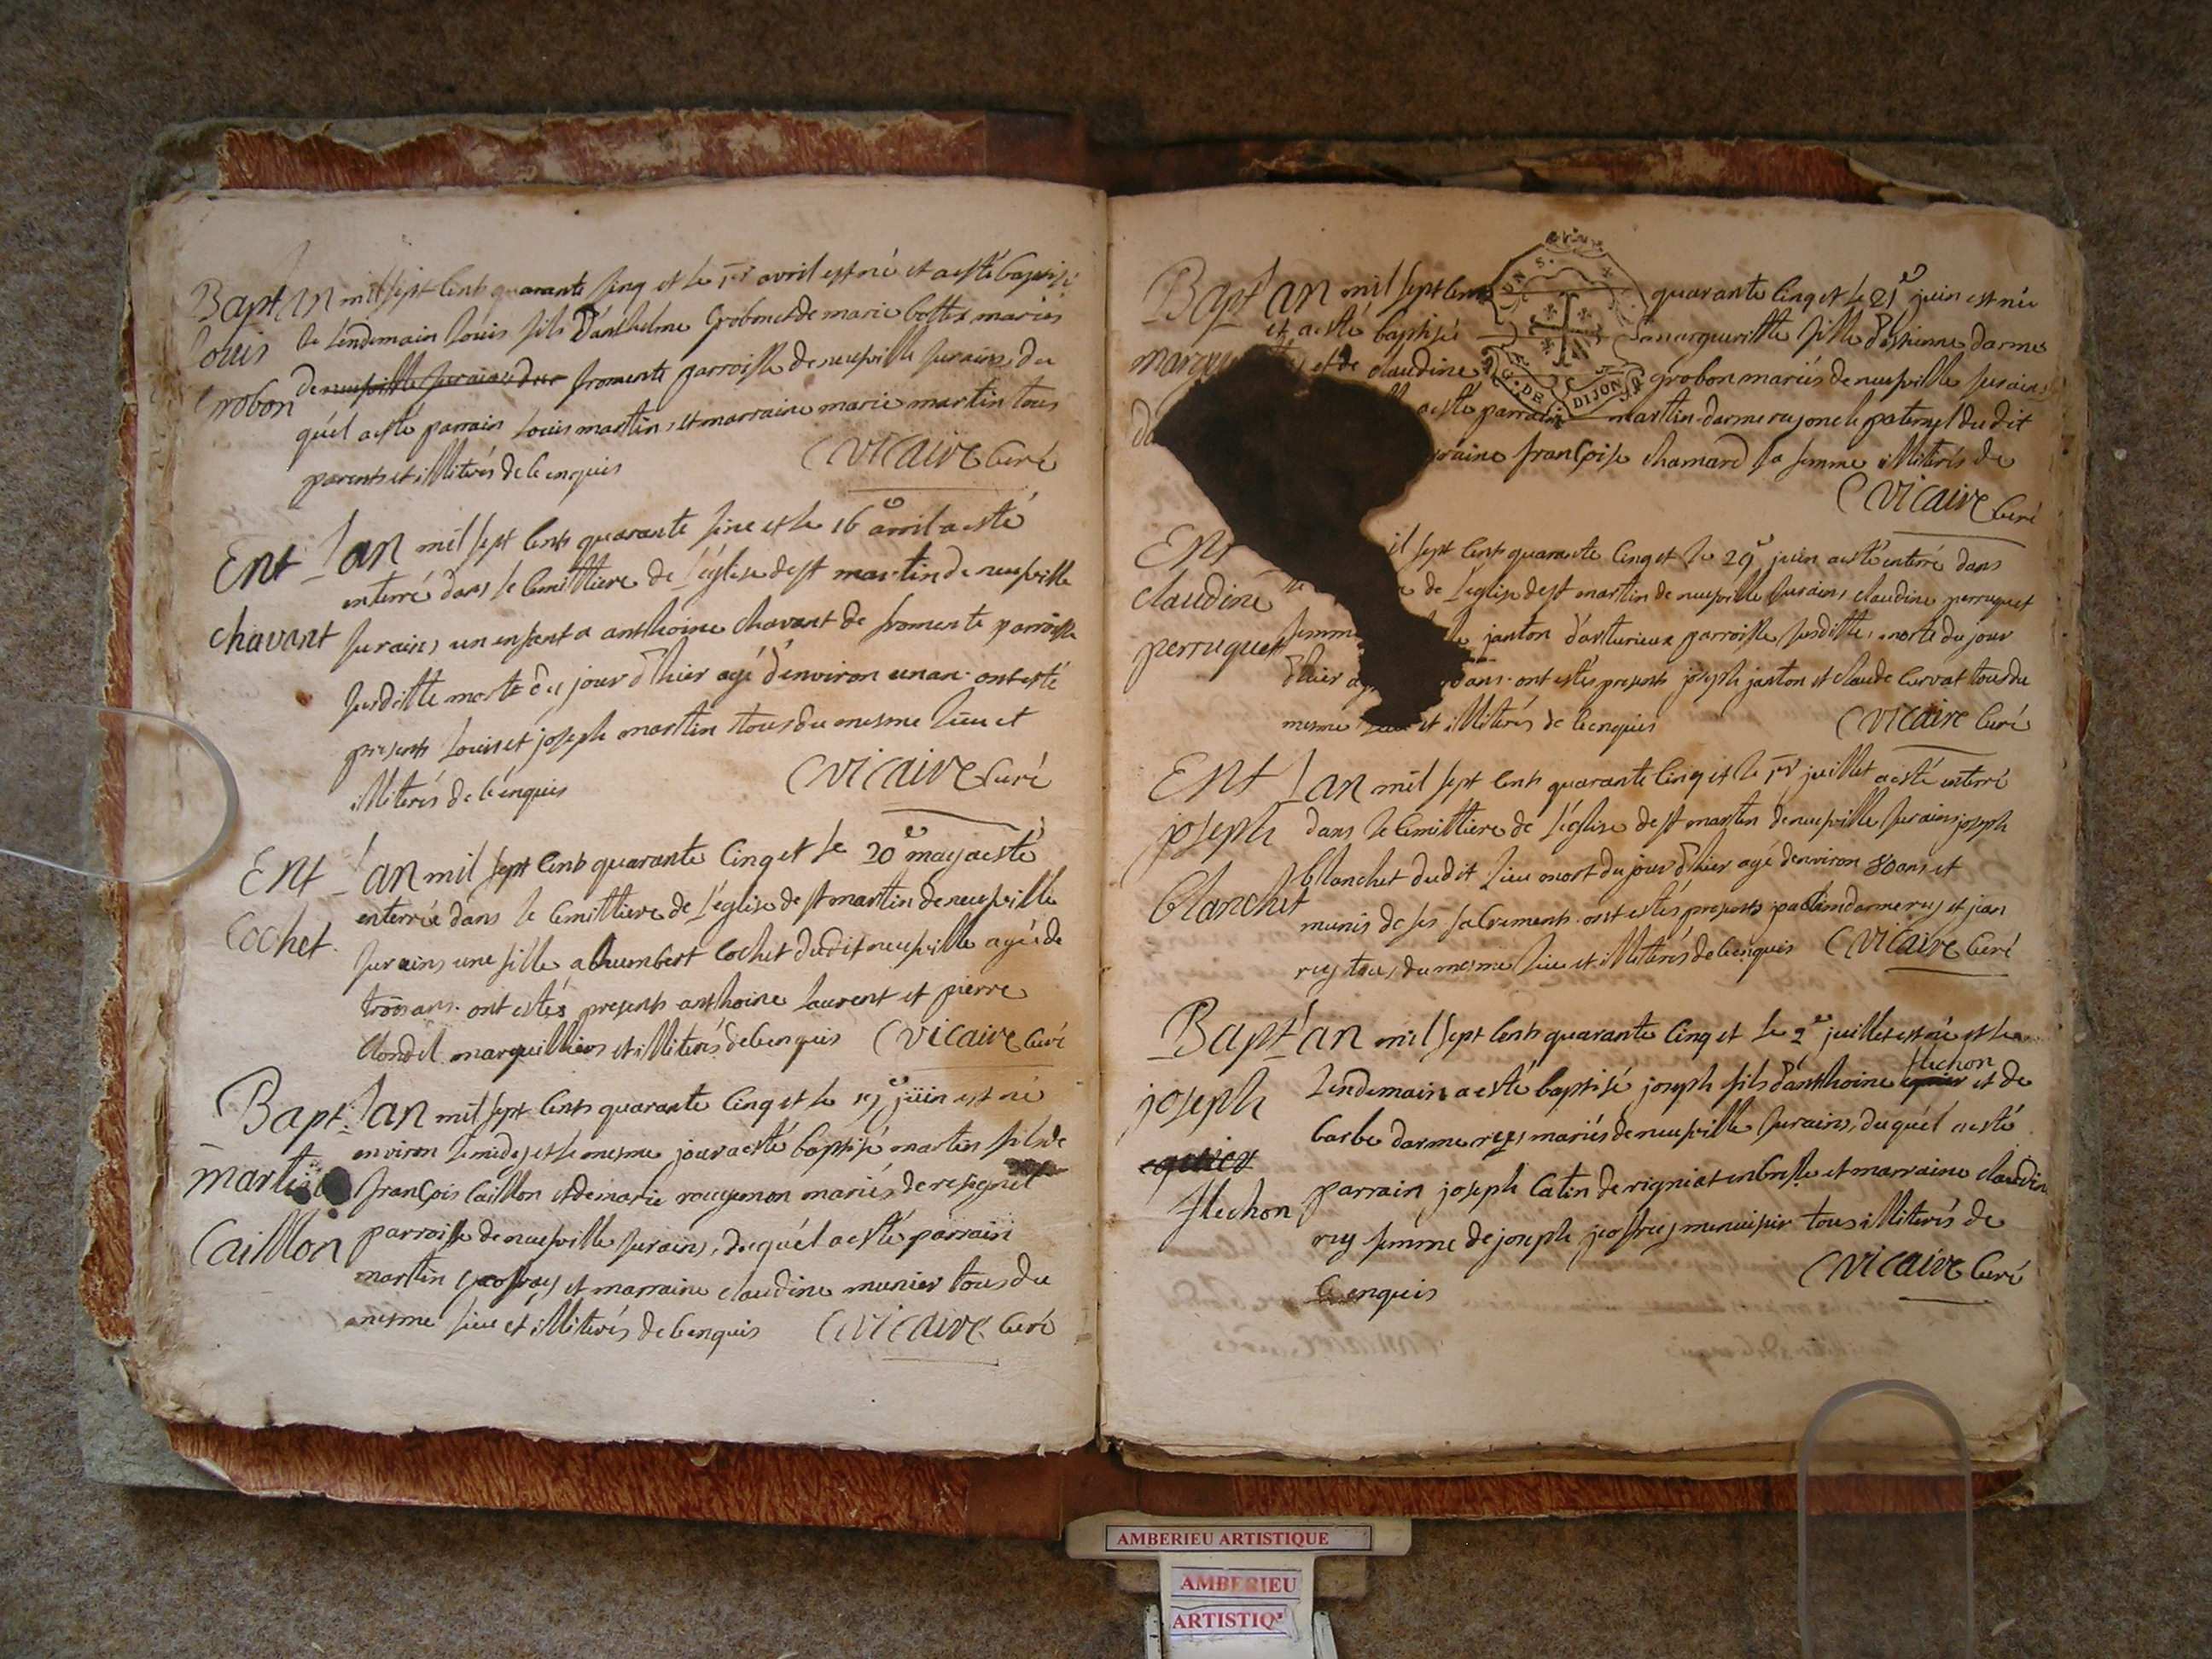 Bapt Lan mil sept cents quarante sinq et le 1er avril est né et a esté baptisé
Louis le lendemain Louis fils d'anthelme Grobon et de marie bottex mariés
Grobon de neufville sur ains du fromente parroisse de neufville sur ains, du
quél a esté parrain Louis martin, et marraine marie martin tous
parents et illiterés de ce enquis Vicaire Curé
Ent Lan mil sept cents quarante sinc et le 16e avril a esté
enterré dans le cemittiere de l'église de st martin de neufville
chavant sur ains, un enfant a anthoine chavant de fromente parroisse
susditte mort du jour d'hier agé d'environ un an. ont esté
presents Louis et joseph martin tous du mesme lieu et
illiterés de ce enquis Vicaire Curé
Ent Lan mil sept cents quarante cinq et le 20e may a esté
enterrée dans le cemittiere de l'église de st martin de neufville
Cochet. sur ains une fille a humbert Cochet dudit neufville agée de
trois ans. ont estés presents anthoine Laurent et pierre
blondel marguilliers et illiterés de ce enquis Vicaire Curé
Bapt. Lan mil sept cents quarante cinq et le juin est né
environ le midy et le mesme jour a esté baptisé martin fils de
martin françois Caillon et de marie mariés de resignel
Caillon parroisse de neufville sur ains, duquél a esté parrain
martin geofray et marraine claudine munier tous du
mesme lieu et illiterés de ce enquis Vicaire. Curé
Bapt Lan mil sept cents quarante cinq et le 21e juin est née
et a esté baptisée margueritte fille d'estienne darme
et de claudine grobon mariés de neufville sur ains
a esté parrain martin darmeray oncle paternel du dit
françoise chamard sa femme illiterés de
Vicaire Curé
G. DE DIJON
Ent sept cents quarante cinq et le 29e juin a esté enterré dans
claudine de L'eglise de st martin de neufville sur ains, claudine perruquet
perruquet femme janton d'arturieux parroisse susditte, morte du jour
d'hier ans. ont estés presents joseph janton et claude Curvat tous du
mesme lieu et illiterés de ce enquis Vicaire Curé
Ent Lan mil sept cents quarante cinq et le 1er juillet a esté enterré
joseph dans le cemittiere de l'église de st martin de neufville sur ains joseph
blanchet blanchet dudit lieu mort du jour d'hier agé d'environ 80 ans et
munis de ses sacrements. ont estés presents darmeray et jean
rey tous du mesme lieu et illiterés de ce enquis Vicaire Curé
Bapt Lan mil sept cents quarante cinq et le 2e juillet est né et le
flechon
joseph lendemain a esté baptisé joseph fils d'anthoine et de
barbe darmerey mariés de neufville sur ains, duquél a esté
parrain joseph Catin de rigniat en bresse et marraine claudine
flechon rey femme de joseph jeofrey menuisier tous illiterés de
ce enquis Vicaire Curé
AMBERIEU ARTISTIQUE
AMBERIEU
ARTISTIQ